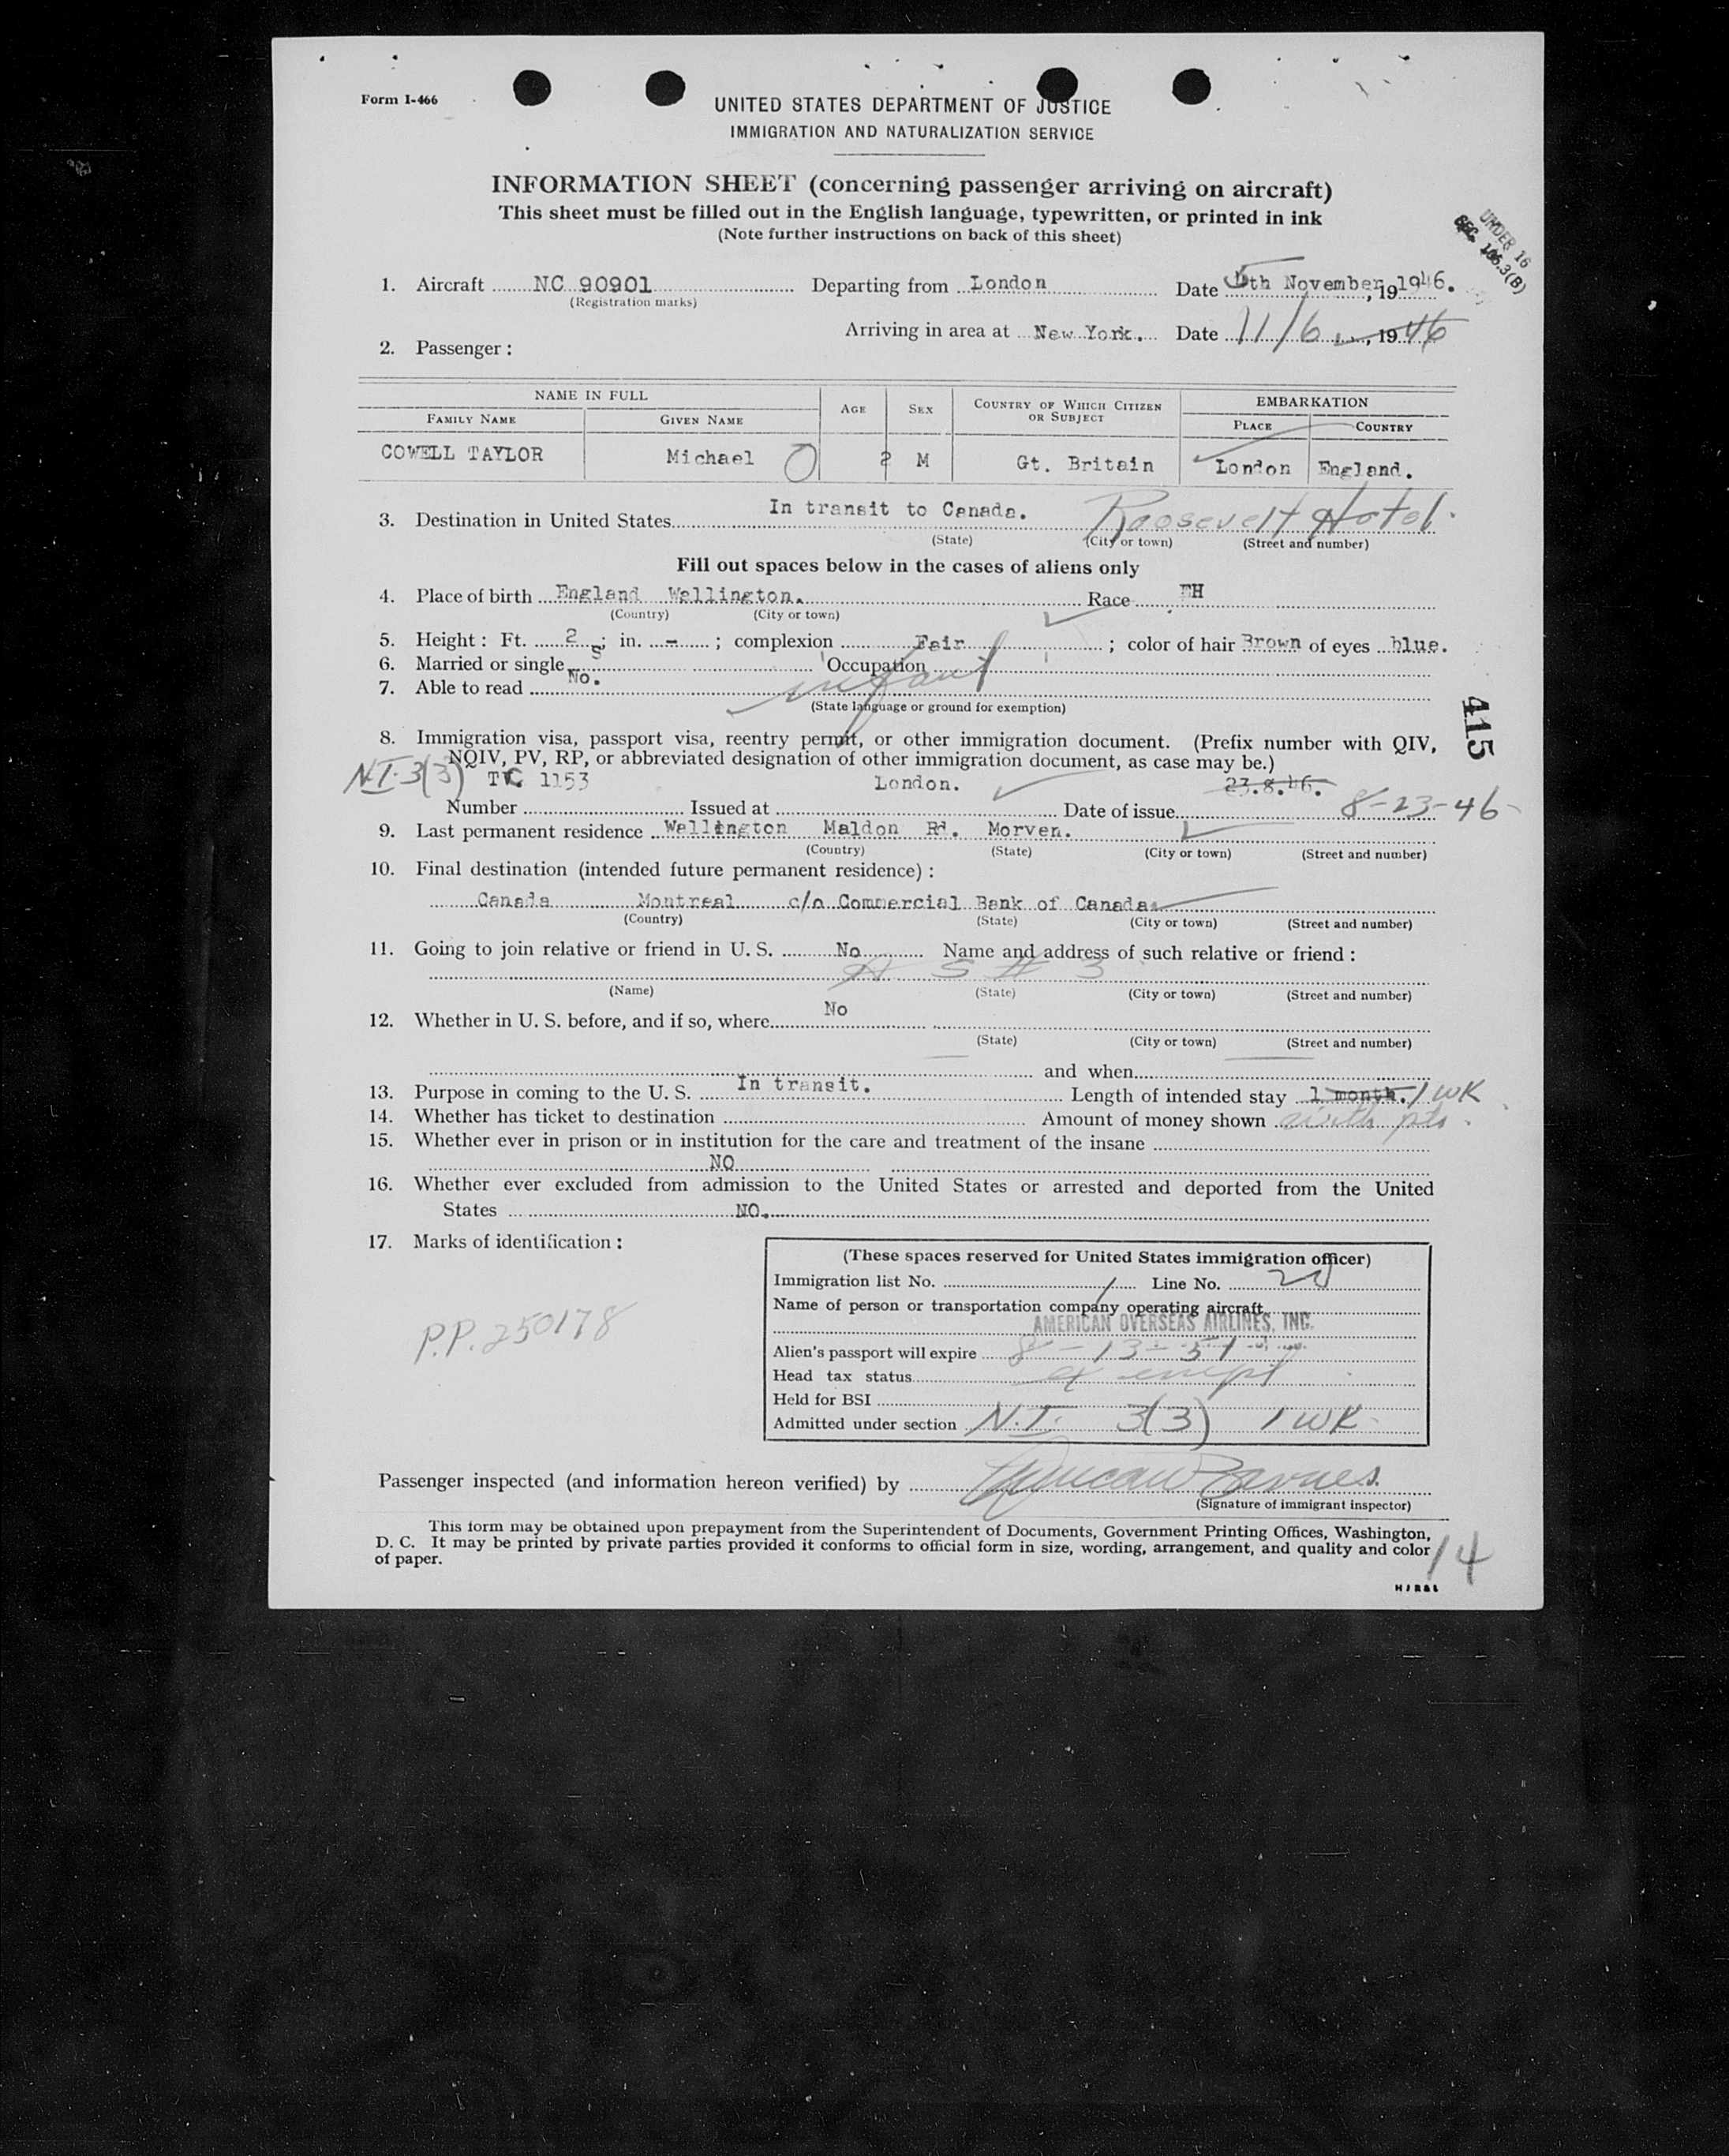 Form I-466
UNITED STATES DEPARTMENT OF JUSTICE
IMMIGRATION AND NATURALIZATION SERVICE
INFORMATION SHEET (concerning passenger arriving on aircraft)
This sheet must be filled out in the English language, typewritten, or printed in ink
(Note further instructions on back of this sheet)
UNDER 16
SEC. 106.3(B)
1. Aircraft NC 90901 Departing from London Date 5th November, 19 1946.
(Registration marks)
Arriving in area at New York. Date 11/6, 1946
2. Passenger :
NAME IN FULL AGE SEX COUNTRY OF WHICH CITIZEN OR SUBJECT EMBARKATION
FAMILY NAME GIVEN NAME PLACE COUNTRY
COWELL TAYLOR Michael 2 M Gt. Britain London England.
3. Destination in United States In transit to Canada. Roosevelt Hotel.
(State) (City or town) (Street and number)
Fill out spaces below in the cases of aliens only
4. Place of birth England Wallington. Race
(Country) (City or town)
5. Height : Ft. 2 ; in. - ; complexion Fair ; color of hair Brown of eyes blue.
6. Married or single S Occupation infant
7. Able to read No.
(State language or ground for exemption)
415
8. Immigration visa, passport visa, reentry permit, or other immigration document. (Prefix number with QIV,
NQIV, PV, RP, or abbreviated designation of other immigration document, as case may be.)
N.T. 3(3) TVC 1153 London. 23.8.46. 8-23-46
Number Issued at Date of issue
9. Last permanent residence Wallington Maldon Rd. Morven.
(Country) (State) (City or town) (Street and number)
10. Final destination (intended future permanent residence) :
Canada Montreal c/o Commercial Bank of Canada.
(Country) (State) (City or town) (Street and number)
11. Going to join relative or friend in U. S. No Name and address of such relative or friend :
(Name) (State) (City or town) (Street and number)
12. Whether in U. S. before, and if so, where No
(State) (City or town) (Street and number)
and when
13. Purpose in coming to the U. S. In transit. Length of intended stay 1 month. 1 WK
14. Whether has ticket to destination Amount of money shown with pts
15. Whether ever in prison or in institution for the care and treatment of the insane
NO
16. Whether ever excluded from admission to the United States or arrested and deported from the United
States NO.
17. Marks of identification :
P.P. 250178
(These spaces reserved for United States immigration officer)
Immigration list No. 1 Line No.
Name of person or transportation company operating aircraft
AMERICAN OVERSEAS AIRLINES, INC.
Alien's passport will expire 8-13-51
Head tax status exempt
Held for BSI
Admitted under section N.T. 3(3) 1 WK
Passenger inspected (and information hereon verified) by Duncan Barnes.
(Signature of immigrant inspector)
This form may be obtained upon prepayment from the Superintendent of Documents, Government Printing Offices, Washington,
D. C. It may be printed by private parties provided it conforms to official form in size, wording, arrangement, and quality and color
of paper.
14